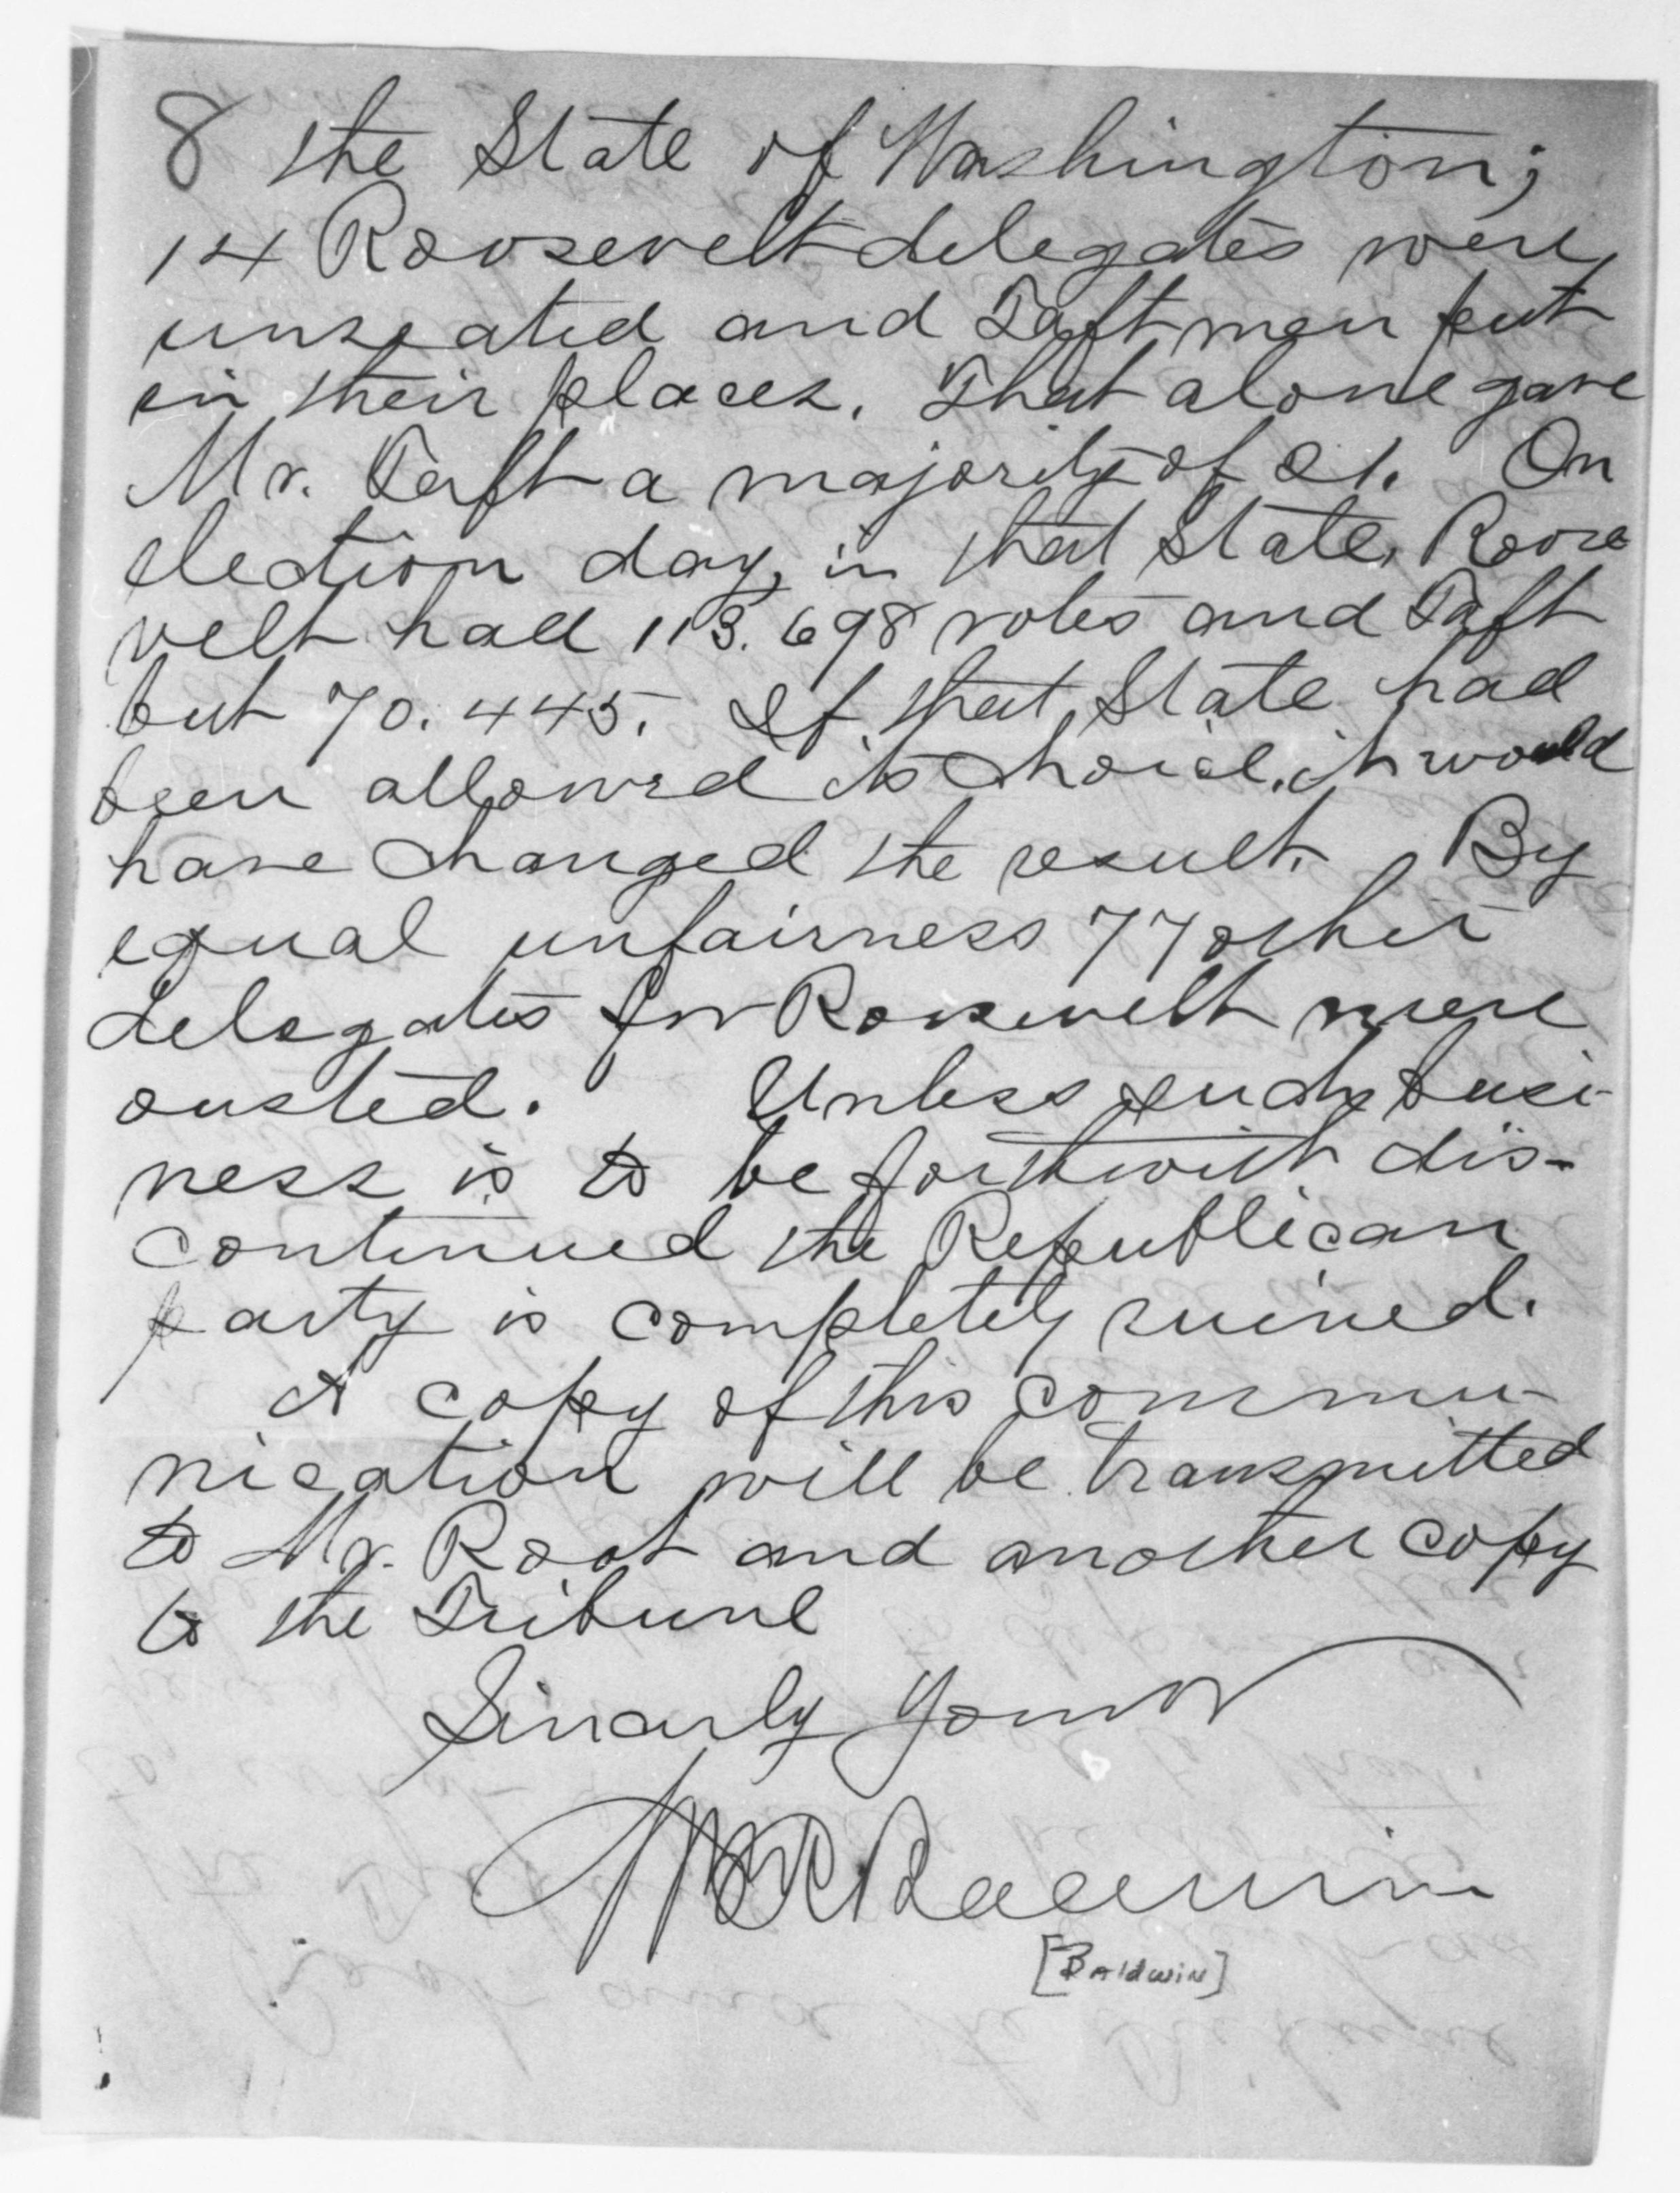 8 the State of Washington;
14 Roosevelt delegates were
unseated and Taft men put
in their places. That alone gave
Mr. Taft a majority of 21. On
election day, in that State, Roose
velt had 113.698 votes and Taft
but 70.445. If that State had
been allowed its choice, it would
have changed the result. By
equal unfairness 77 other
delegates for Roosevelt were
ousted. Unless such busi-
ness is to be forthwith dis-
continued the Republican
party is completely ruined.
A copy of this commu-
nication will be transmitted
to Mr. Root and another copy
to the Tribune
Sincerely Yours
Baldwin
[Baldwin]